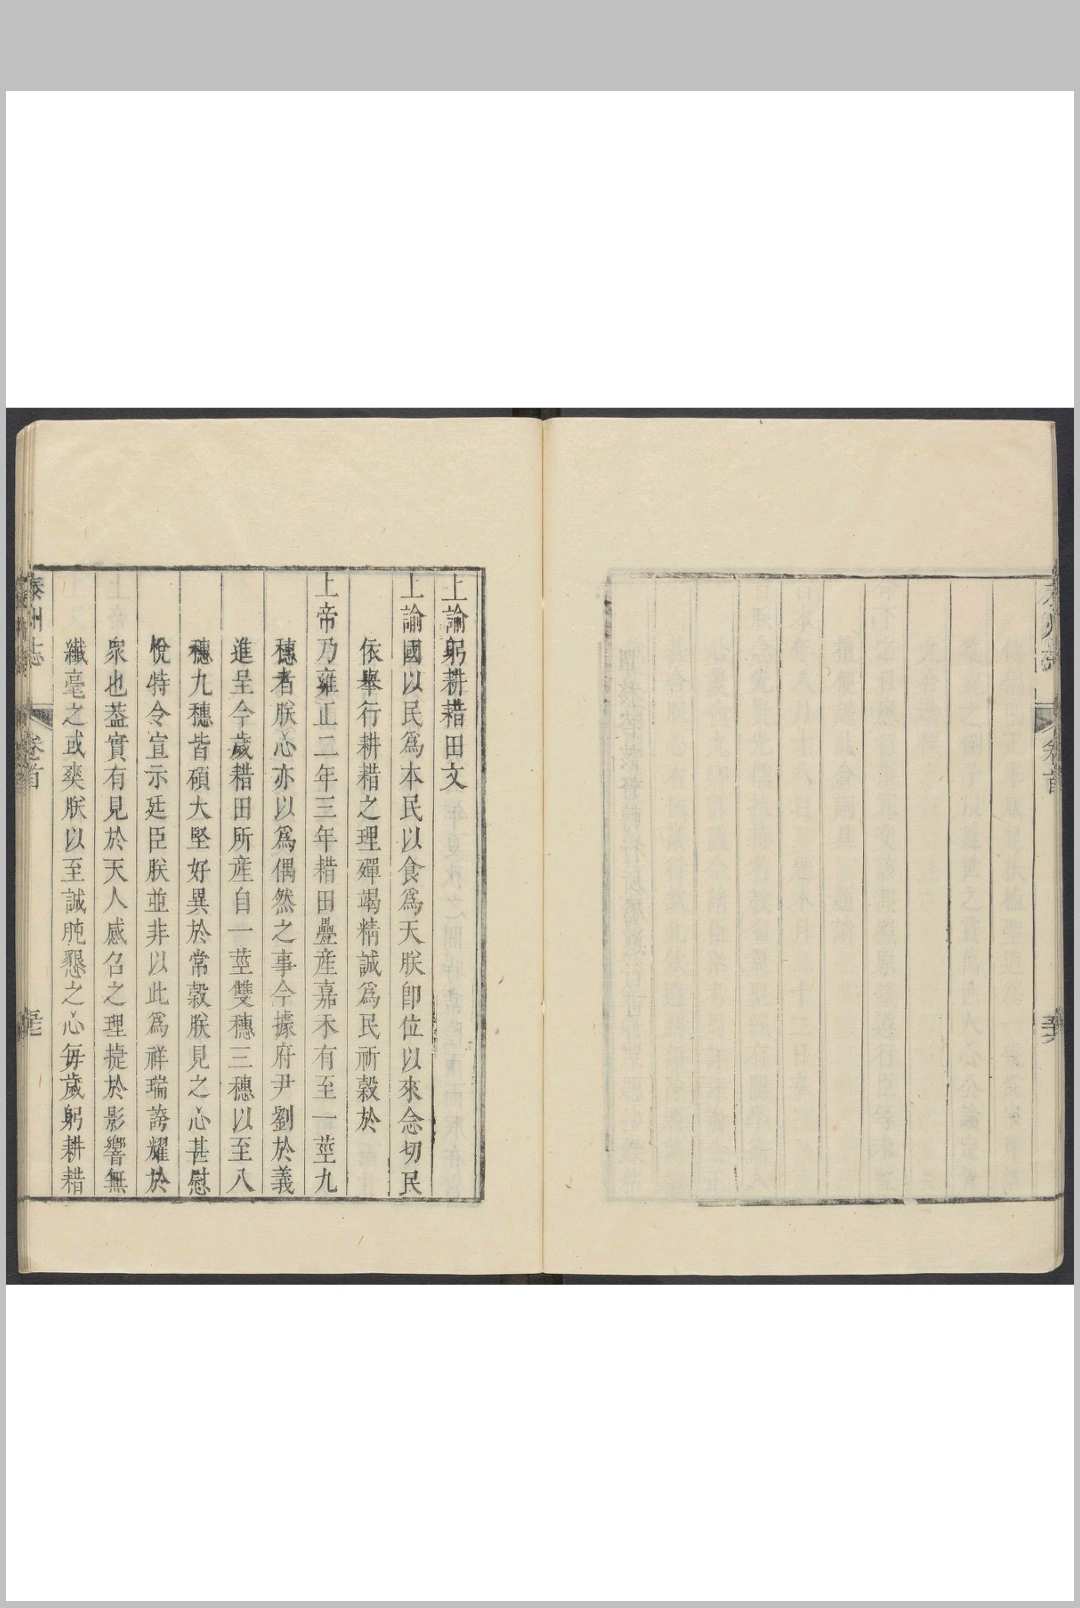 卷首
上諭躬耕耤田文
上諭國以民爲本民以食爲天朕卽位以來念切民
依舉行耕耤之理殫竭精誠爲民祈穀於
上帝乃雍正二年三年耤田疊産嘉禾有至一莖九
穗者朕心亦以爲偶然之事今據府尹劉於義
進呈今歲耤田所産自一莖雙穗三穗以至八
穗九穗皆碩大堅好異於常穀朕見之心甚慰
悅特令宣示廷臣朕並非以此爲祥瑞誇耀於
衆也葢實有見於天人感召之理捷於影響無
纎毫之或爽朕以至誠肫懇之心每歲躬耕耤
泰州志
卷首